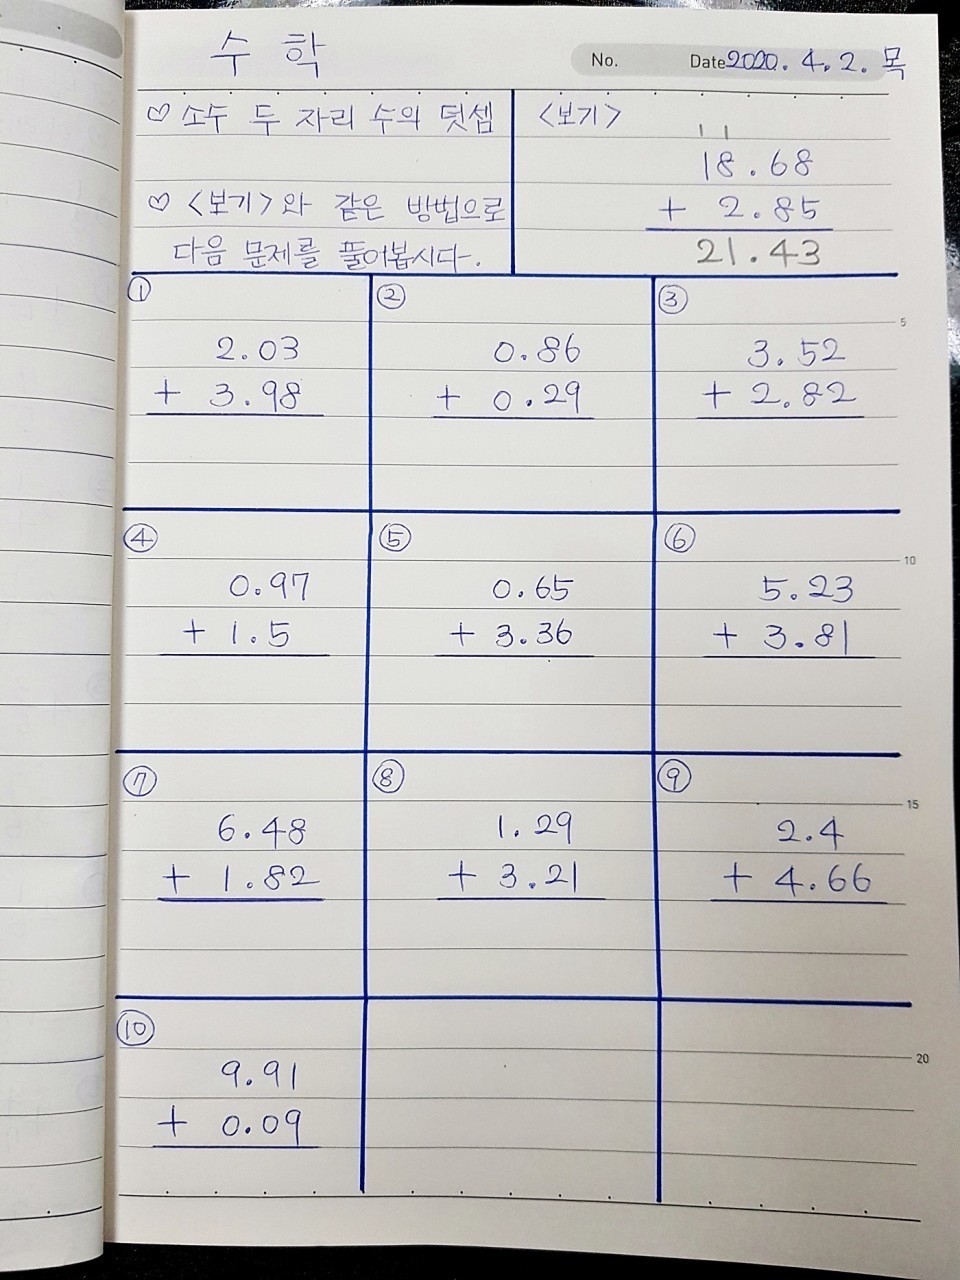 수 학
No. Date 2020. 4. 2. 목
♡ 소수 두 자리 수의 덧셈
♡ <보기>와 같은 방법으로
다음 문제를 풀어봅시다.
<보기>
1 1
18.68
+ 2.85
21.43
①
2.03
+ 3.98
②
0.86
+ 0.29
③
3.52
+ 2.82
5
④
0.97
+ 1.5
⑤
0.65
+ 3.36
⑥
5.23
+ 3.81
10
⑦
6.48
+ 1.82
⑧
1.29
+ 3.21
⑨
2.4
+ 4.66
15
⑩
9.91
+ 0.09
20